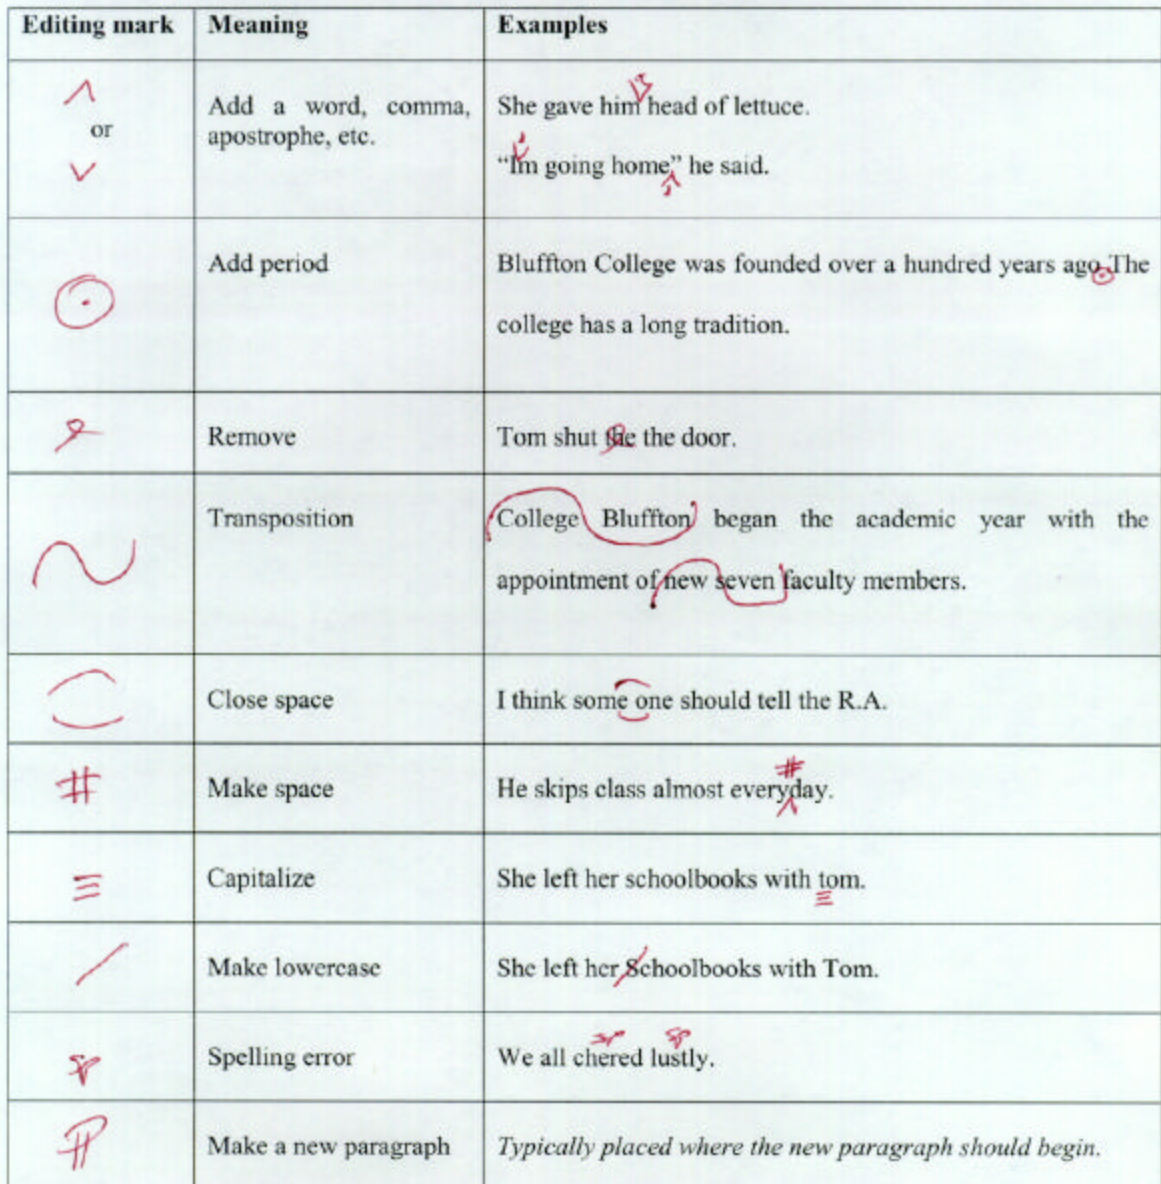 Editing mark Meaning Examples
^ or v Add a word, comma, apostrophe, etc.
She gave him head of lettuce.
“Im going home” he said.
Add period
Bluffton College was founded over a hundred years ago The
college has a long tradition.
Remove Tom shut the the door.
Transposition
College Bluffton began the academic year with the
appointment of new seven faculty members.
Close space I think some one should tell the R.A.
# Make space He skips class almost everyday.
#
Capitalize She left her schoolbooks with tom.
Make lowercase She left her Schoolbooks with Tom.
sp Spelling error We all chered lustly.
sp sp
¶ Make a new paragraph Typically placed where the new paragraph should begin.